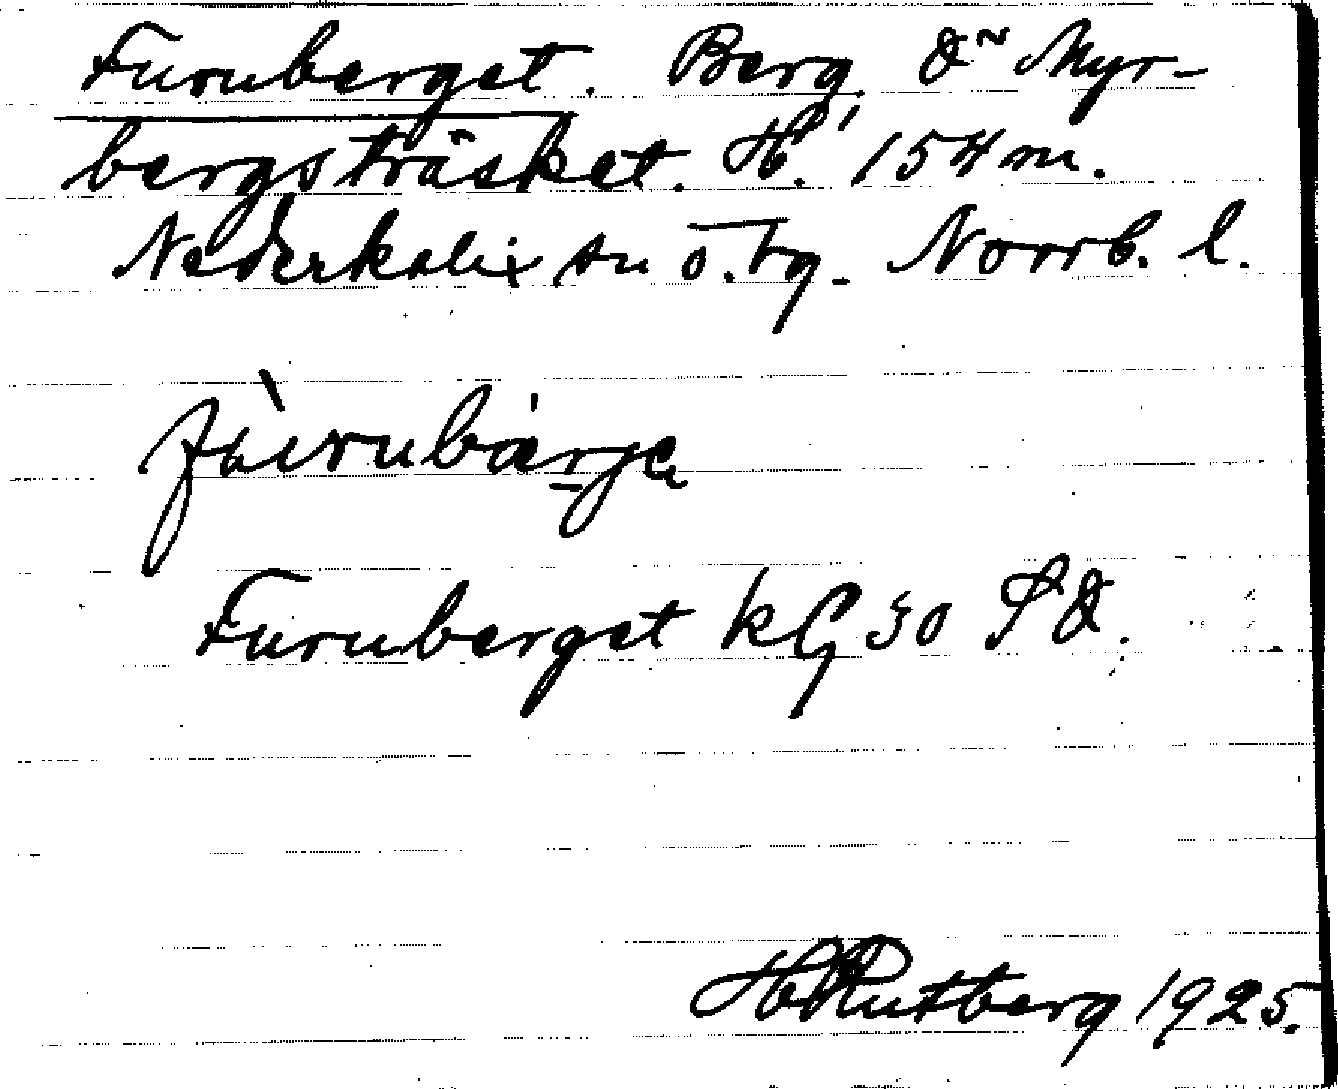 Furuberget. Berg. Ön Myr-
bergsträsket. H. 154 m.
Nederkalix sn ö. tg. Norrb. l.
Furuberget kG 30 SÖ.
H Rutberg 1925.